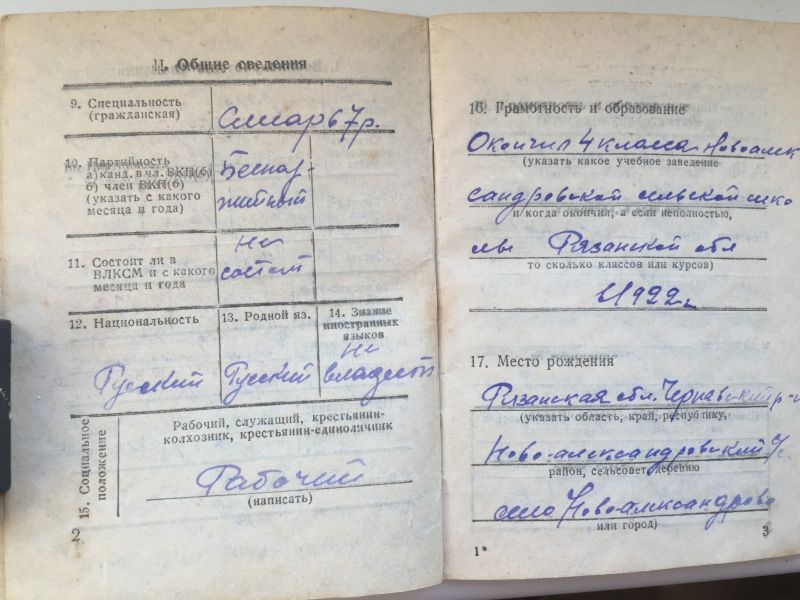 II. Общие сведения
9. Специальность
(гражданская)
Столяр 6 7 р.
10. Партийность
а) канд. в чл. ВКП(б)
б) член ВКП(б)
(указать с какого
месяца и года)
Беспар-
тийный
11. Состоит ли в
ВЛКСМ и с какого
месяца и года
не
состоит
12. Национальность
Русский
13. Родной яз.
Русский
14. Знание
иностранных
языков
не
владеет
15. Социальное
положение
Рабочий, служащий, крестьянин-
колхозник, крестьянин-единоличник
Рабочий
(написать)
2
16. Грамотность и образование
Окончил 4 класса Новоалек
(указать какое учебное заведение
сандровской сельской шко
и когда окончил, а если неполностью,
лы Рязанской обл
то сколько классов или курсов)
в 1922 г.
17. Место рождения
Рязанская обл. Чернавский р-н
(указать область, край, республику,
Ново-александровский с/с
район, сельсовет, деревню
село Новоалександрово
или город)
1*
3